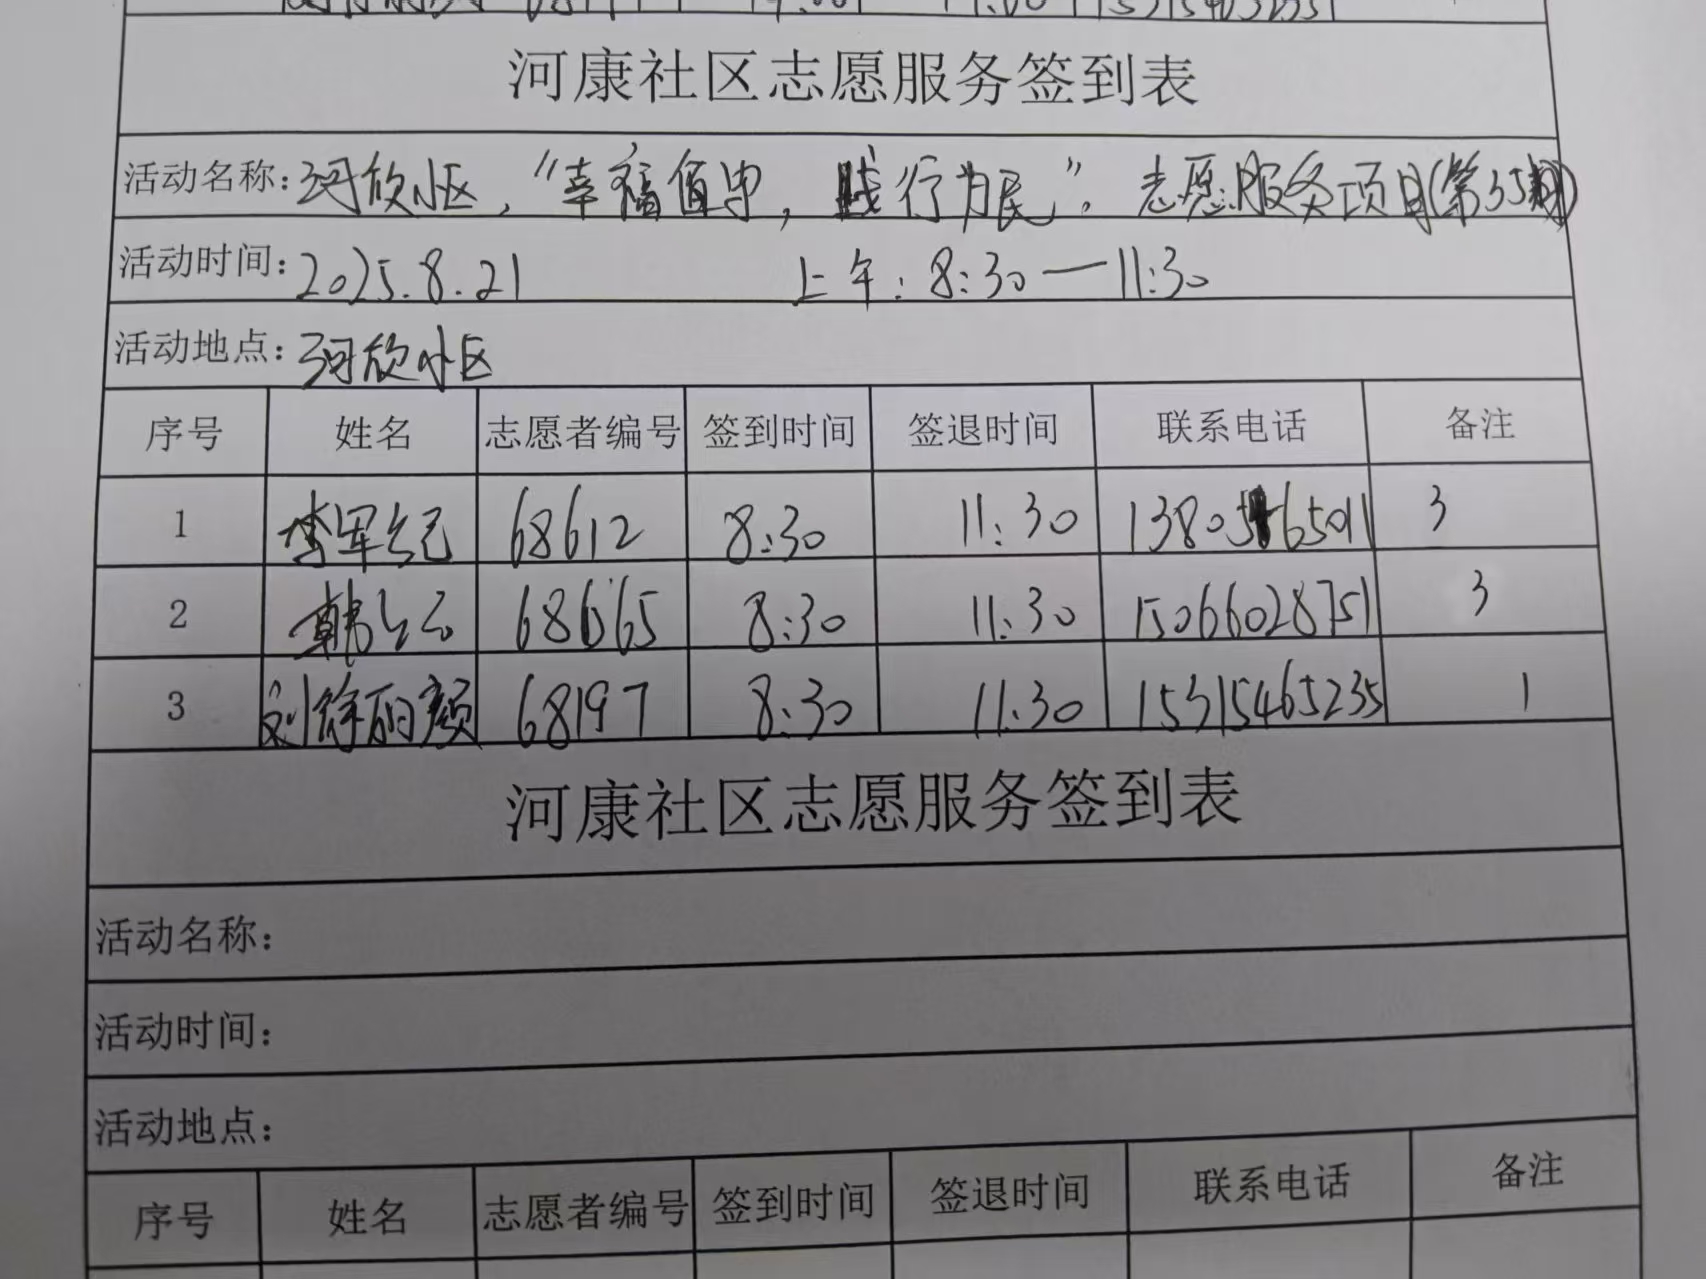 河康社区志愿服务签到表
活动名称:河欣小区,“幸福值守,践行为民”。志愿服务项目(第35期)
活动时间:2025.8.21 上午:8:30—11:30
活动地点:河欣小区
序号 姓名 志愿者编号 签到时间 签退时间 联系电话 备注
1 李军纪 68612 8:30 11:30 3
2 韩云 68665 8:30 11:30 15066028751 3
3 刘徐丽颜 68197 8:30 11:30 15315465235 1
河康社区志愿服务签到表
活动名称:
活动时间:
活动地点:
序号 姓名 志愿者编号 签到时间 签退时间 联系电话 备注